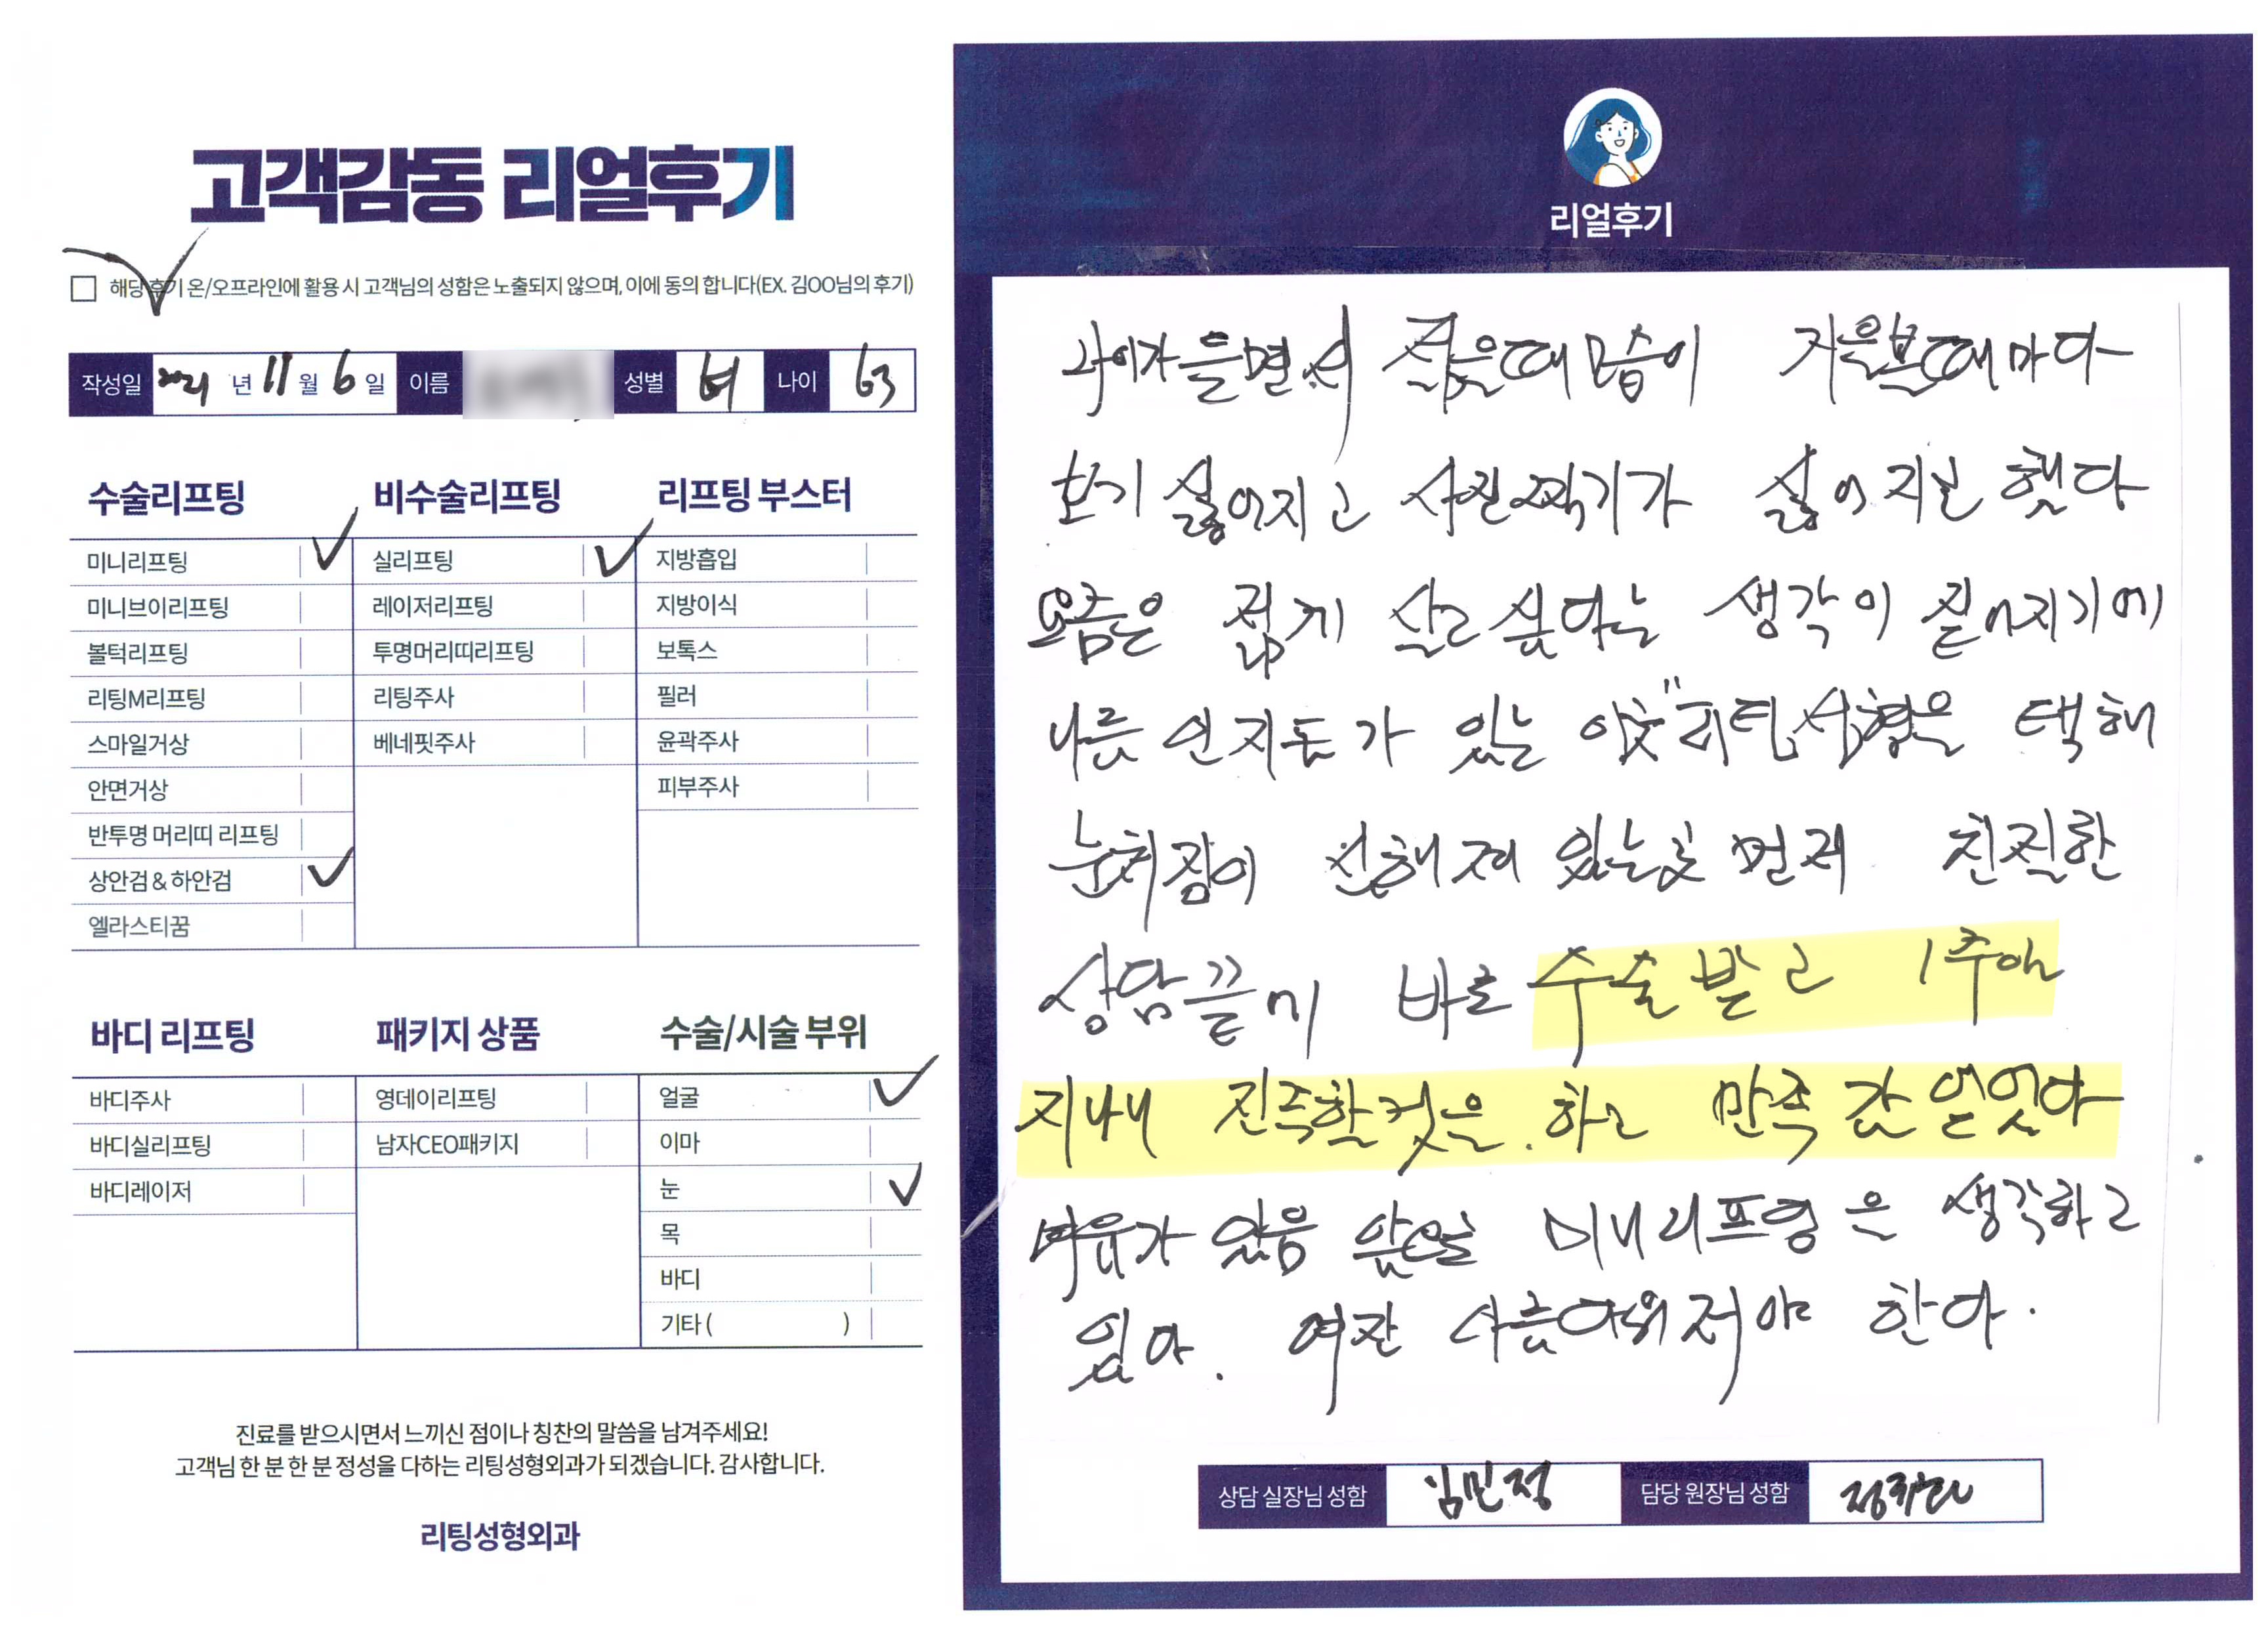 고객감동 리얼후기
해당 후기 온/오프라인에 활용 시 고객님의 성함은 노출되지 않으며, 이에 동의 합니다(EX. 김OO님의 후기)
작성일 2021 년 11 월 6 일 이름 성별 여 나이 63
수술리프팅 비수술리프팅 리프팅 부스터
미니리프팅 실리프팅 지방흡입
미니브이리프팅 레이저리프팅 지방이식
볼턱리프팅 투명머리띠리프팅 보톡스
리팅M리프팅 리팅주사 필러
스마일거상 베네핏주사 윤곽주사
안면거상 피부주사
반투명 머리띠 리프팅
상안검 & 하안검
엘라스티꿈
바디 리프팅 패키지 상품 수술/시술 부위
바디주사 영데이리프팅 얼굴
바디실리프팅 남자CEO패키지 이마
바디레이저 눈
목
바디
기타 ( )
진료를 받으시면서 느끼신 점이나 칭찬의 말씀을 남겨주세요!
고객님 한 분 한 분 정성을 다하는 리팅성형외과가 되겠습니다. 감사합니다.
리팅성형외과
리얼후기
나이가 들면서 젊을때 모습이 거울볼때마다
보기 싫어지고 사진찍기가 싫어지곤 했다
요즘은 젊게 살고 싶다는 생각이 짙어지기에
나름 인지도가 있는 이곳 "리팅성형을 택해
눈처짐이 심해져 있는곳 먼저 친절한
상담끝에 바로 수술받고 1주일
지나니 만족 감 얻었다
여유가 있음 앞으로 미니리프팅은 생각하고
있다. 여잔 아름다워져야 한다.
상담 실장님 성함 김민정 담당 원장님 성함